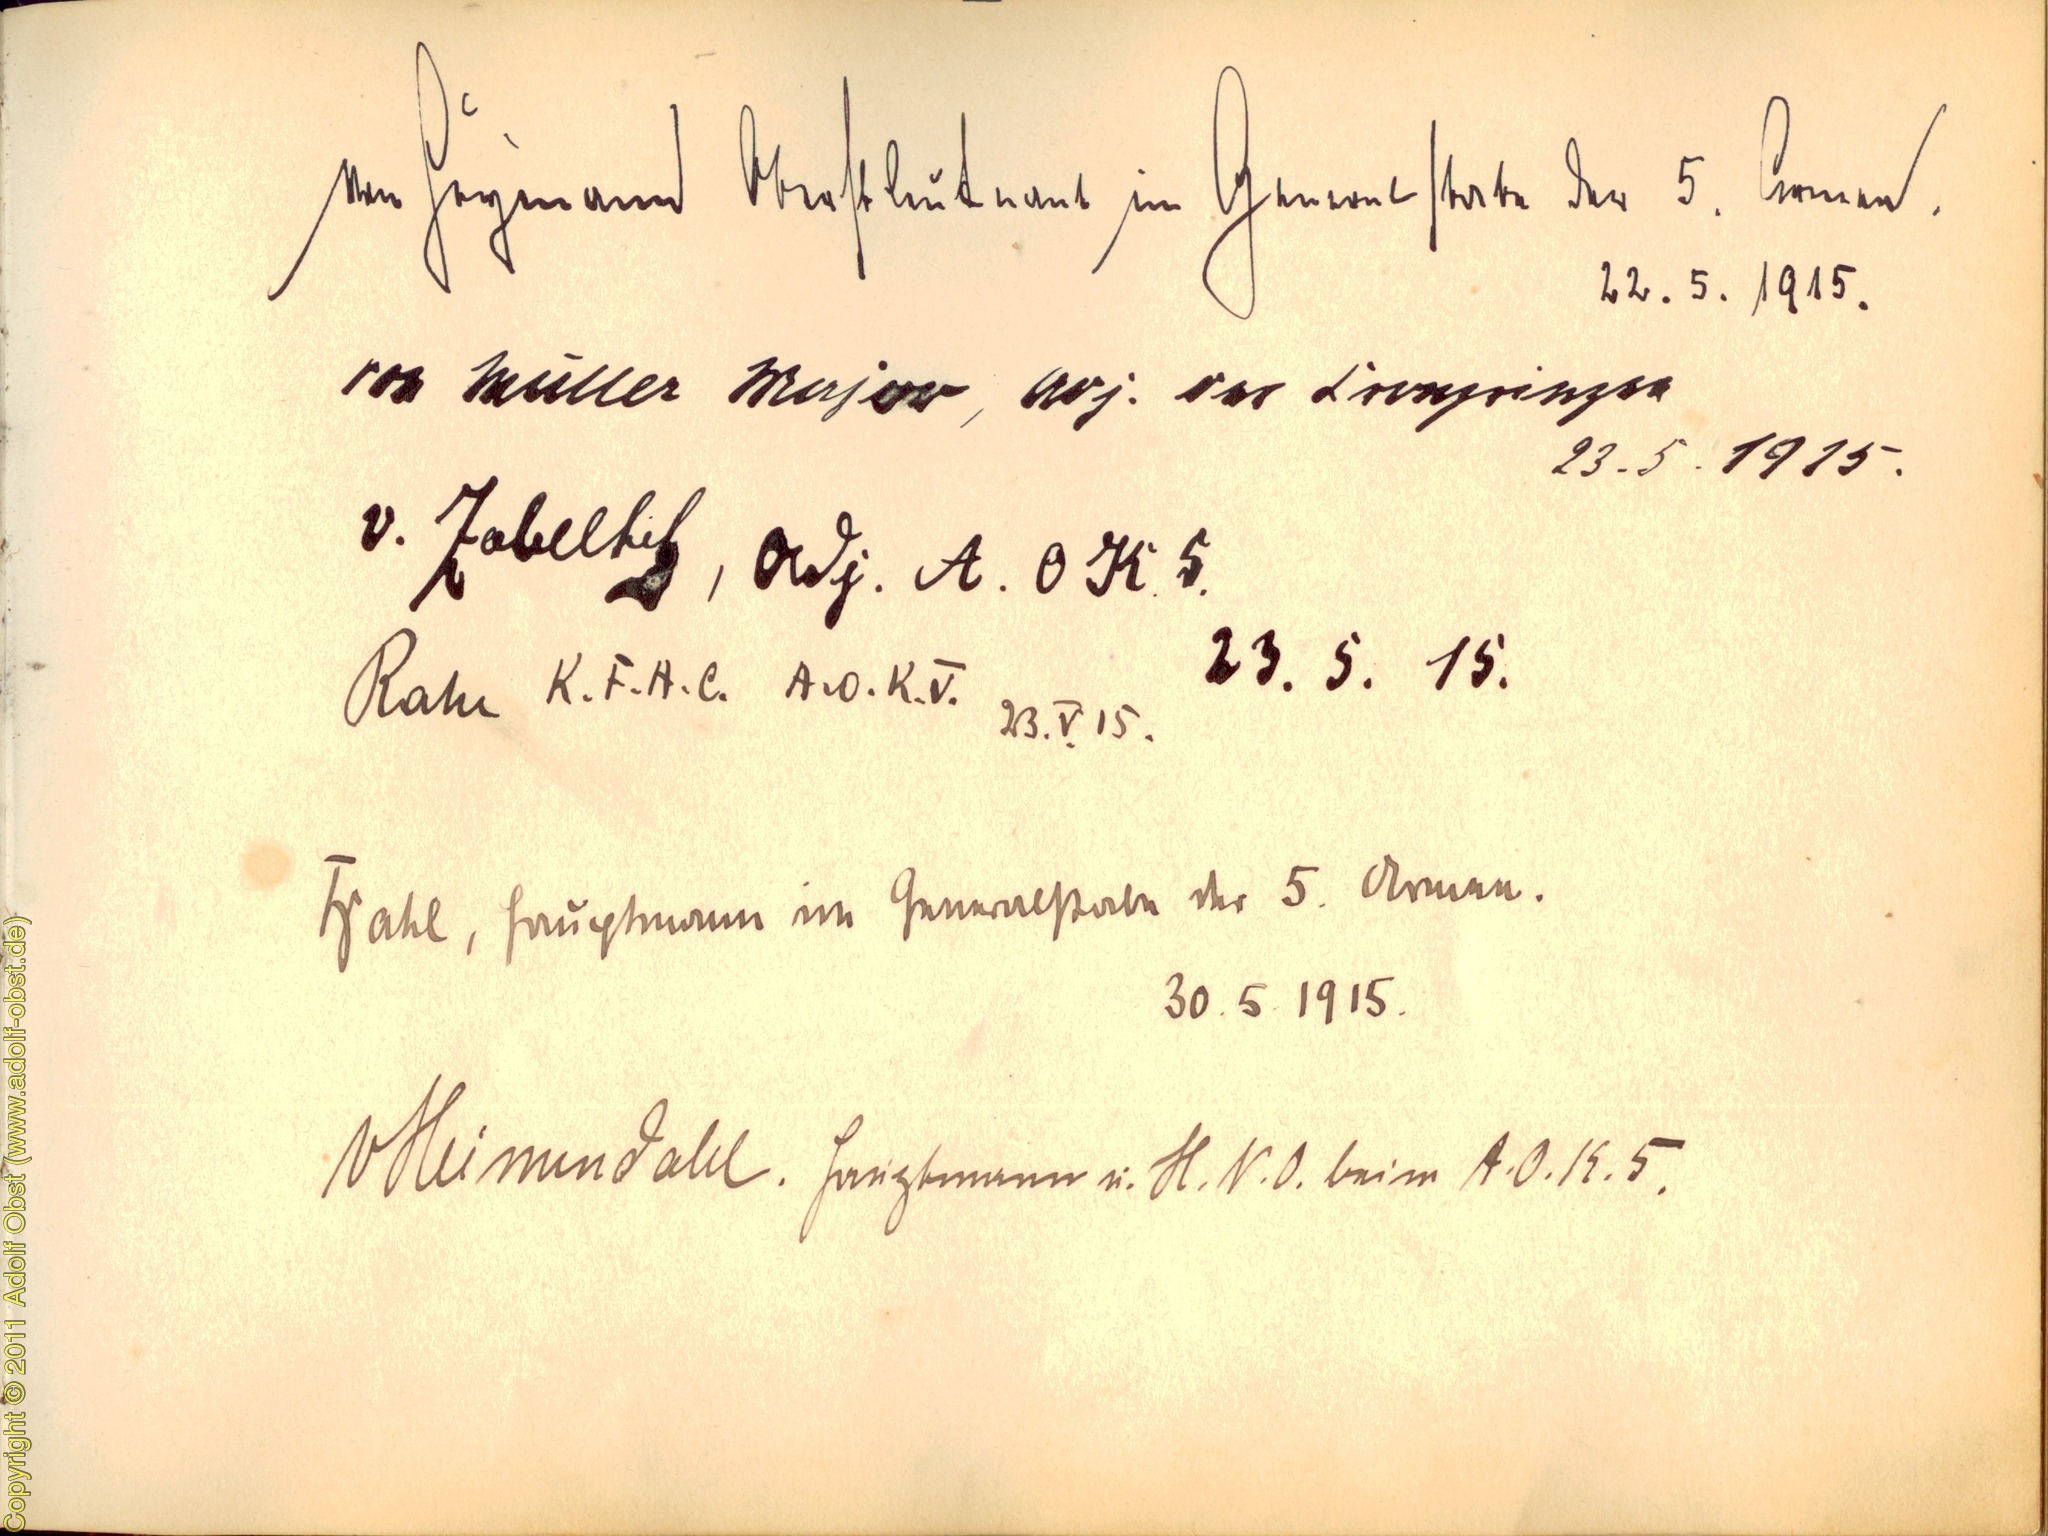 von Heymann Oberstleutnant im Generalstabe der 5. Armee.
22. 5. 1915.
von Müller Major, Adj. des Kronprinzen
23. 5. 1915.
v. Zobeltitz, Adj. A. O K 5.
23. 5. 15.
K. F. A. C. A. O. K. V.
23. V. 15.
Hauptmann im Generalstabe der 5. Armee.
30. 5. 1915.
v Heimendahl. Hauptmann u. H. N. O. beim A. O. K. 5.
Copyright © 2011 Adolf Obst (www.adolf-obst.de)